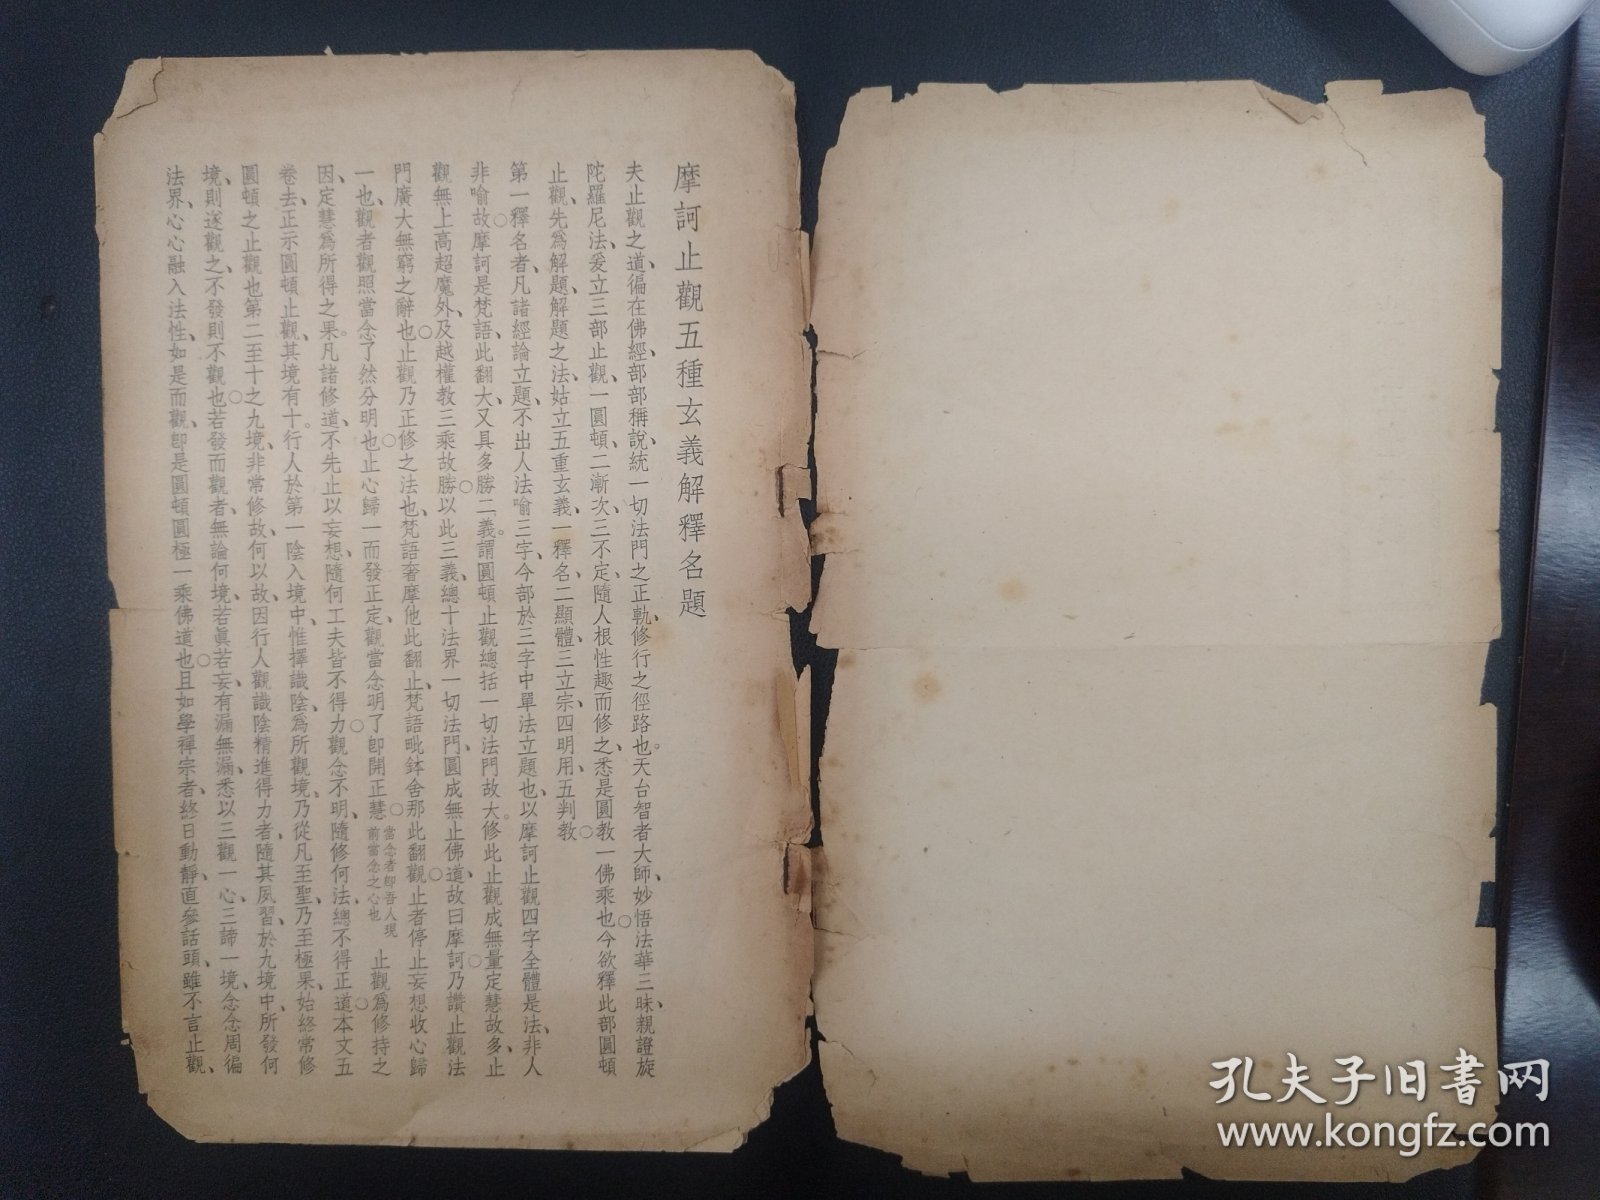 摩訶止觀五種玄義解釋名題
夫止觀之道、徧在佛經、部部稱說、統一切法門之正軌、修行之徑路也。天台智者大師、妙悟法華三昧、親證旋
陀羅尼法、爰立三部止觀、一圓頓、二漸次、三不定、隨人根性趣而修之、悉是圓教一佛乘也○今欲釋此部圓頓
止觀、先爲解題、解題之法、姑立五重玄義、一釋名、二顯體、三立宗、四明用、五判教○
第一釋名者、凡諸經論立題、不出人法喻三字、今部於三字中單法立題也、以摩訶止觀四字全體是法、非人
非喻故○摩訶是梵語、此翻大、又具多、勝二義。謂圓頓止觀總括一切法門故大。修此止觀成無量定慧故多、止
觀無上高超魔外、及越權教三乘故勝○以此三義、總十法界一切法門、圓成無止佛道、故曰摩訶○乃讚止觀法
門廣大無窮之辭也○止觀乃正修之法也、梵語奢摩他此翻止、梵語毗鉢舍那此翻觀○止者停止妄想收心歸
一也、觀者觀照當念了然分明也○止心歸一而發正定、觀當念明了卽開正慧○當念者卽吾人現前當念之心也 止觀爲修持之
因、定慧爲所得之果。凡諸修道、不先止以妄想、隨何工夫皆不得力○觀念不明、隨修何法、總不得正道○本文五
卷去、正示圓頓止觀、其境有十。行人於第一陰入境中、惟擇識陰、爲所觀境、乃從凡至聖、乃至極果、始終常修
圓頓之止觀也○第二至十之九境、非常修故、何以故、因行人觀識陰精進得力者、隨其夙習、於九境中、所發何
境、則遂觀之、不發則不觀也○若發而觀者、無論何境、若眞若妄、有漏無漏、悉以三觀一心、三諦一境、念念周徧
法界、心心融入法性、如是而觀、卽是圓頓圓極一乘佛道也○且如學禪宗者、終日動靜、直參話頭、雖不言止觀、
孔夫子旧书网
www.kongfz.com